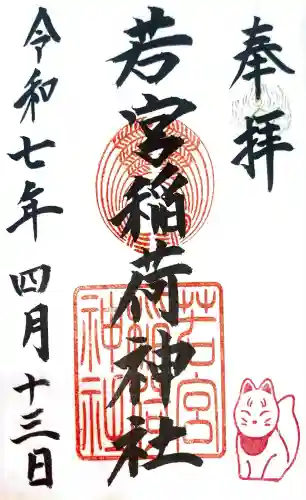 奉拝
若宮稲荷神社
令和七年四月十三日
若宮
稲荷
神社